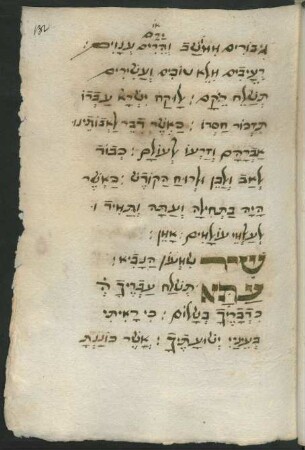 132
גבורים ממושב והרים ענוים:
רעיבים מלא טובים ועשירים
תשלח ריקם: לוקח ישראל עבדו
תזכור חסדו: כאשר דבר לאבותינו
אברהם וזרעו לעולם: כבוד
לאב ולבן ולרוח הקודש: כאשר
היה בתחילה ועתה ותמיד ו
לעולמי עולמים: אמן:
שיר שמעון הנביא:
עתה תשלח עבדיך ה'
כדבריך בשלום: כי ראיתי
בעיני ישועתיך: אשר כוננת